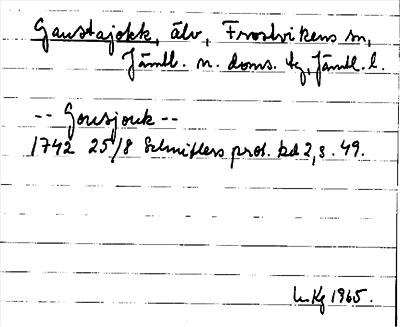 Gaustajokk, älv, Frostvikens sn,
Jämtl. n. doms. tg, Jämtl. l.
-- Gousjouk --
1742 25/8 Schnitlers prot. bd 2, s. 49.
1965.